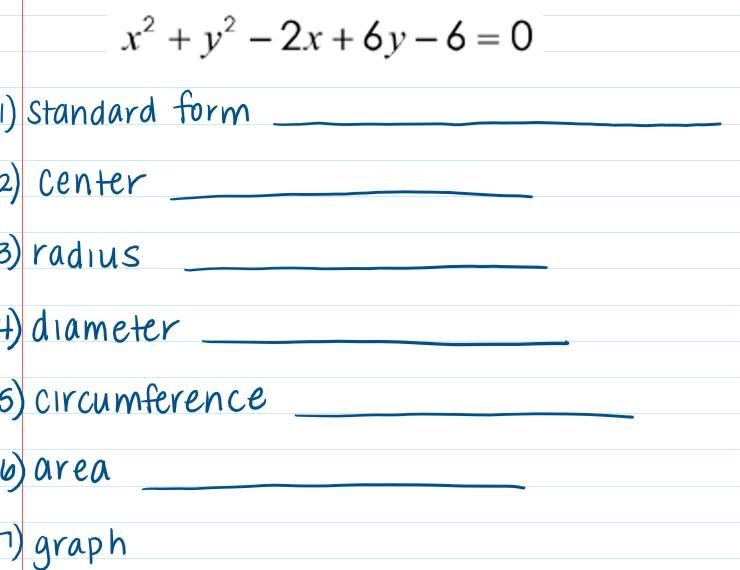 x² + y² − 2x + 6y − 6 = 0
1) Standard form
2) center
3) radius
4) diameter
5) circumference
6) area
7) graph